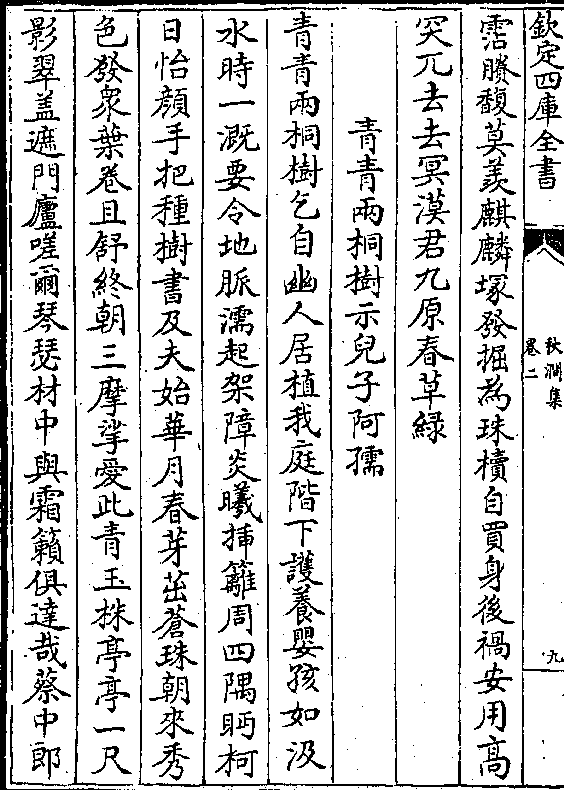 欽定四庫全書
秋澗集
卷二
九
霑賸馥莫羨麒麟塚發掘為珠櫝自買身後禍安用髙
突兀去去冥漠君九原春草緑
青青兩桐樹示兒子阿孺
青青兩桐樹乞自幽人居植我庭階下護養嬰孩如汲
水時一溉要令地脈濡起架障炎曦插籬周四隅眄柯
日怡顔手把種樹書及夫始華月春芽茁蒼珠朝來秀
色發衆葉卷且舒終朝三摩挲愛此青玉株亭亭一尺
影翠盖遮門廬嗟爾琴瑟材中與霜籟俱達哉蔡中郎